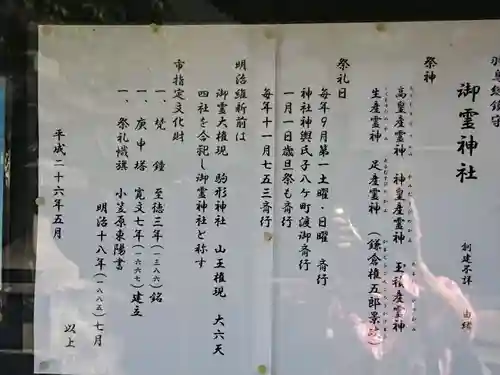 総鎮守
御霊神社
創建不詳
由緒
祭神
高皇産霊神 神皇産霊神 玉積産霊神
生産霊神 足産霊神 (鎌倉権五郎景政)
祭礼日
毎年9月第一土曜、日曜 斉行
神社神輿氏子八ケ町渡御斉行
一月一日歳旦祭も斉行
毎年十一月七五三斉行
明治維新前は
御霊大権現 駒形神社 山王権現 大六天
四社を合祀し御霊神社と称す
市指定文化財
一、梵鐘 至徳三年(一三八六)銘
一、庚申塔 寛文七年(一六六七)建立
一、祭礼幟旗 小笠原東陽書
明治十八年(一八八五)七月
以上
平成二十六年五月